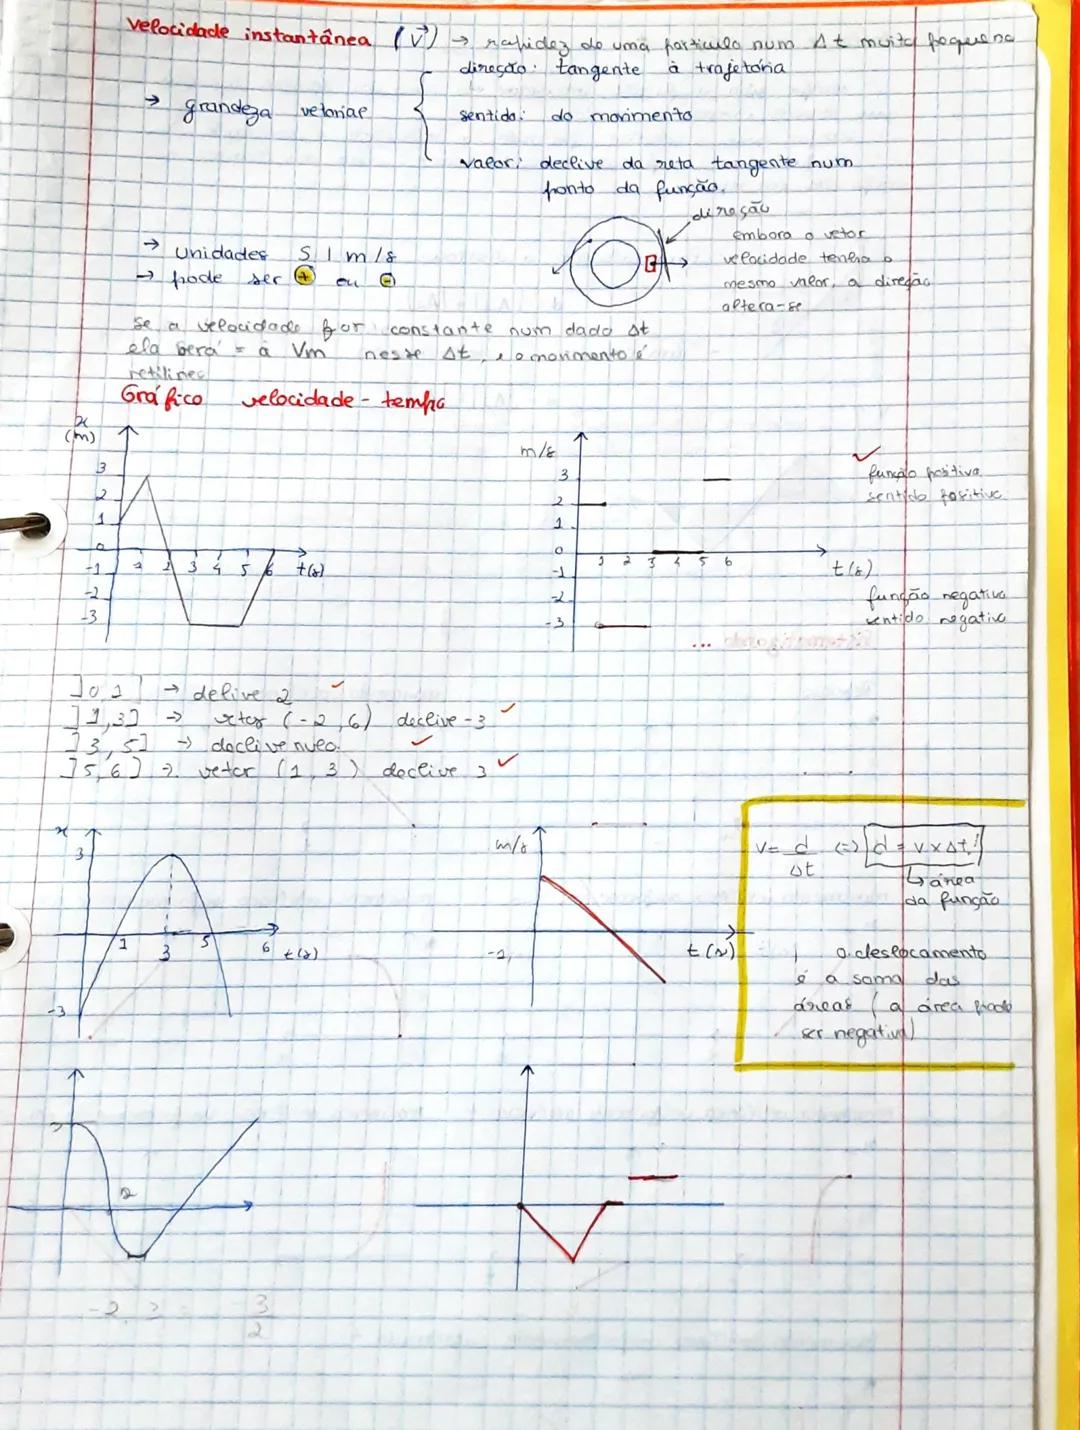 Velocidade instantânea (v⃗) → rapidez de uma partícula num Δt muito pequeno
direção: tangente à trajetória
→ grandeza vetorial
sentido: do movimento
valor: declive da reta tangente num
ponto da função.
direção
embora o vetor
→ Unidades SI m/s
velocidade tenha o
→ pode ser + ou -
mesmo valor, a direção
altera-se
se a velocidade for constante num dado Δt
ela será = à Vm nesse Δt, e o movimento é
retilíneo
Gráfico velocidade - tempo
x
(m)
3
2
1
0
-1
-2
-3
1 2 3 4 5 6 t(s)
m/s
3
2
1
0
-1
-2
-3
1 2 3 4 5 6
t(s)
função positiva
sentido positivo
função negativa
sentido negativo
]0,1] → delive 2
]1,3] → vetor (-2,6) declive -3
]3,5] → declive nulo.
]5,6] → vetor (1,3) declive 3
x
3
1 3 5 6 t(s)
-3
m/s
-2,
t(s)
v = d/Δt (=) d = v x Δt!
↳ área
da função
o deslocamento
é a soma das
áreas (a área pode
ser negativa)
2
-2
3
2